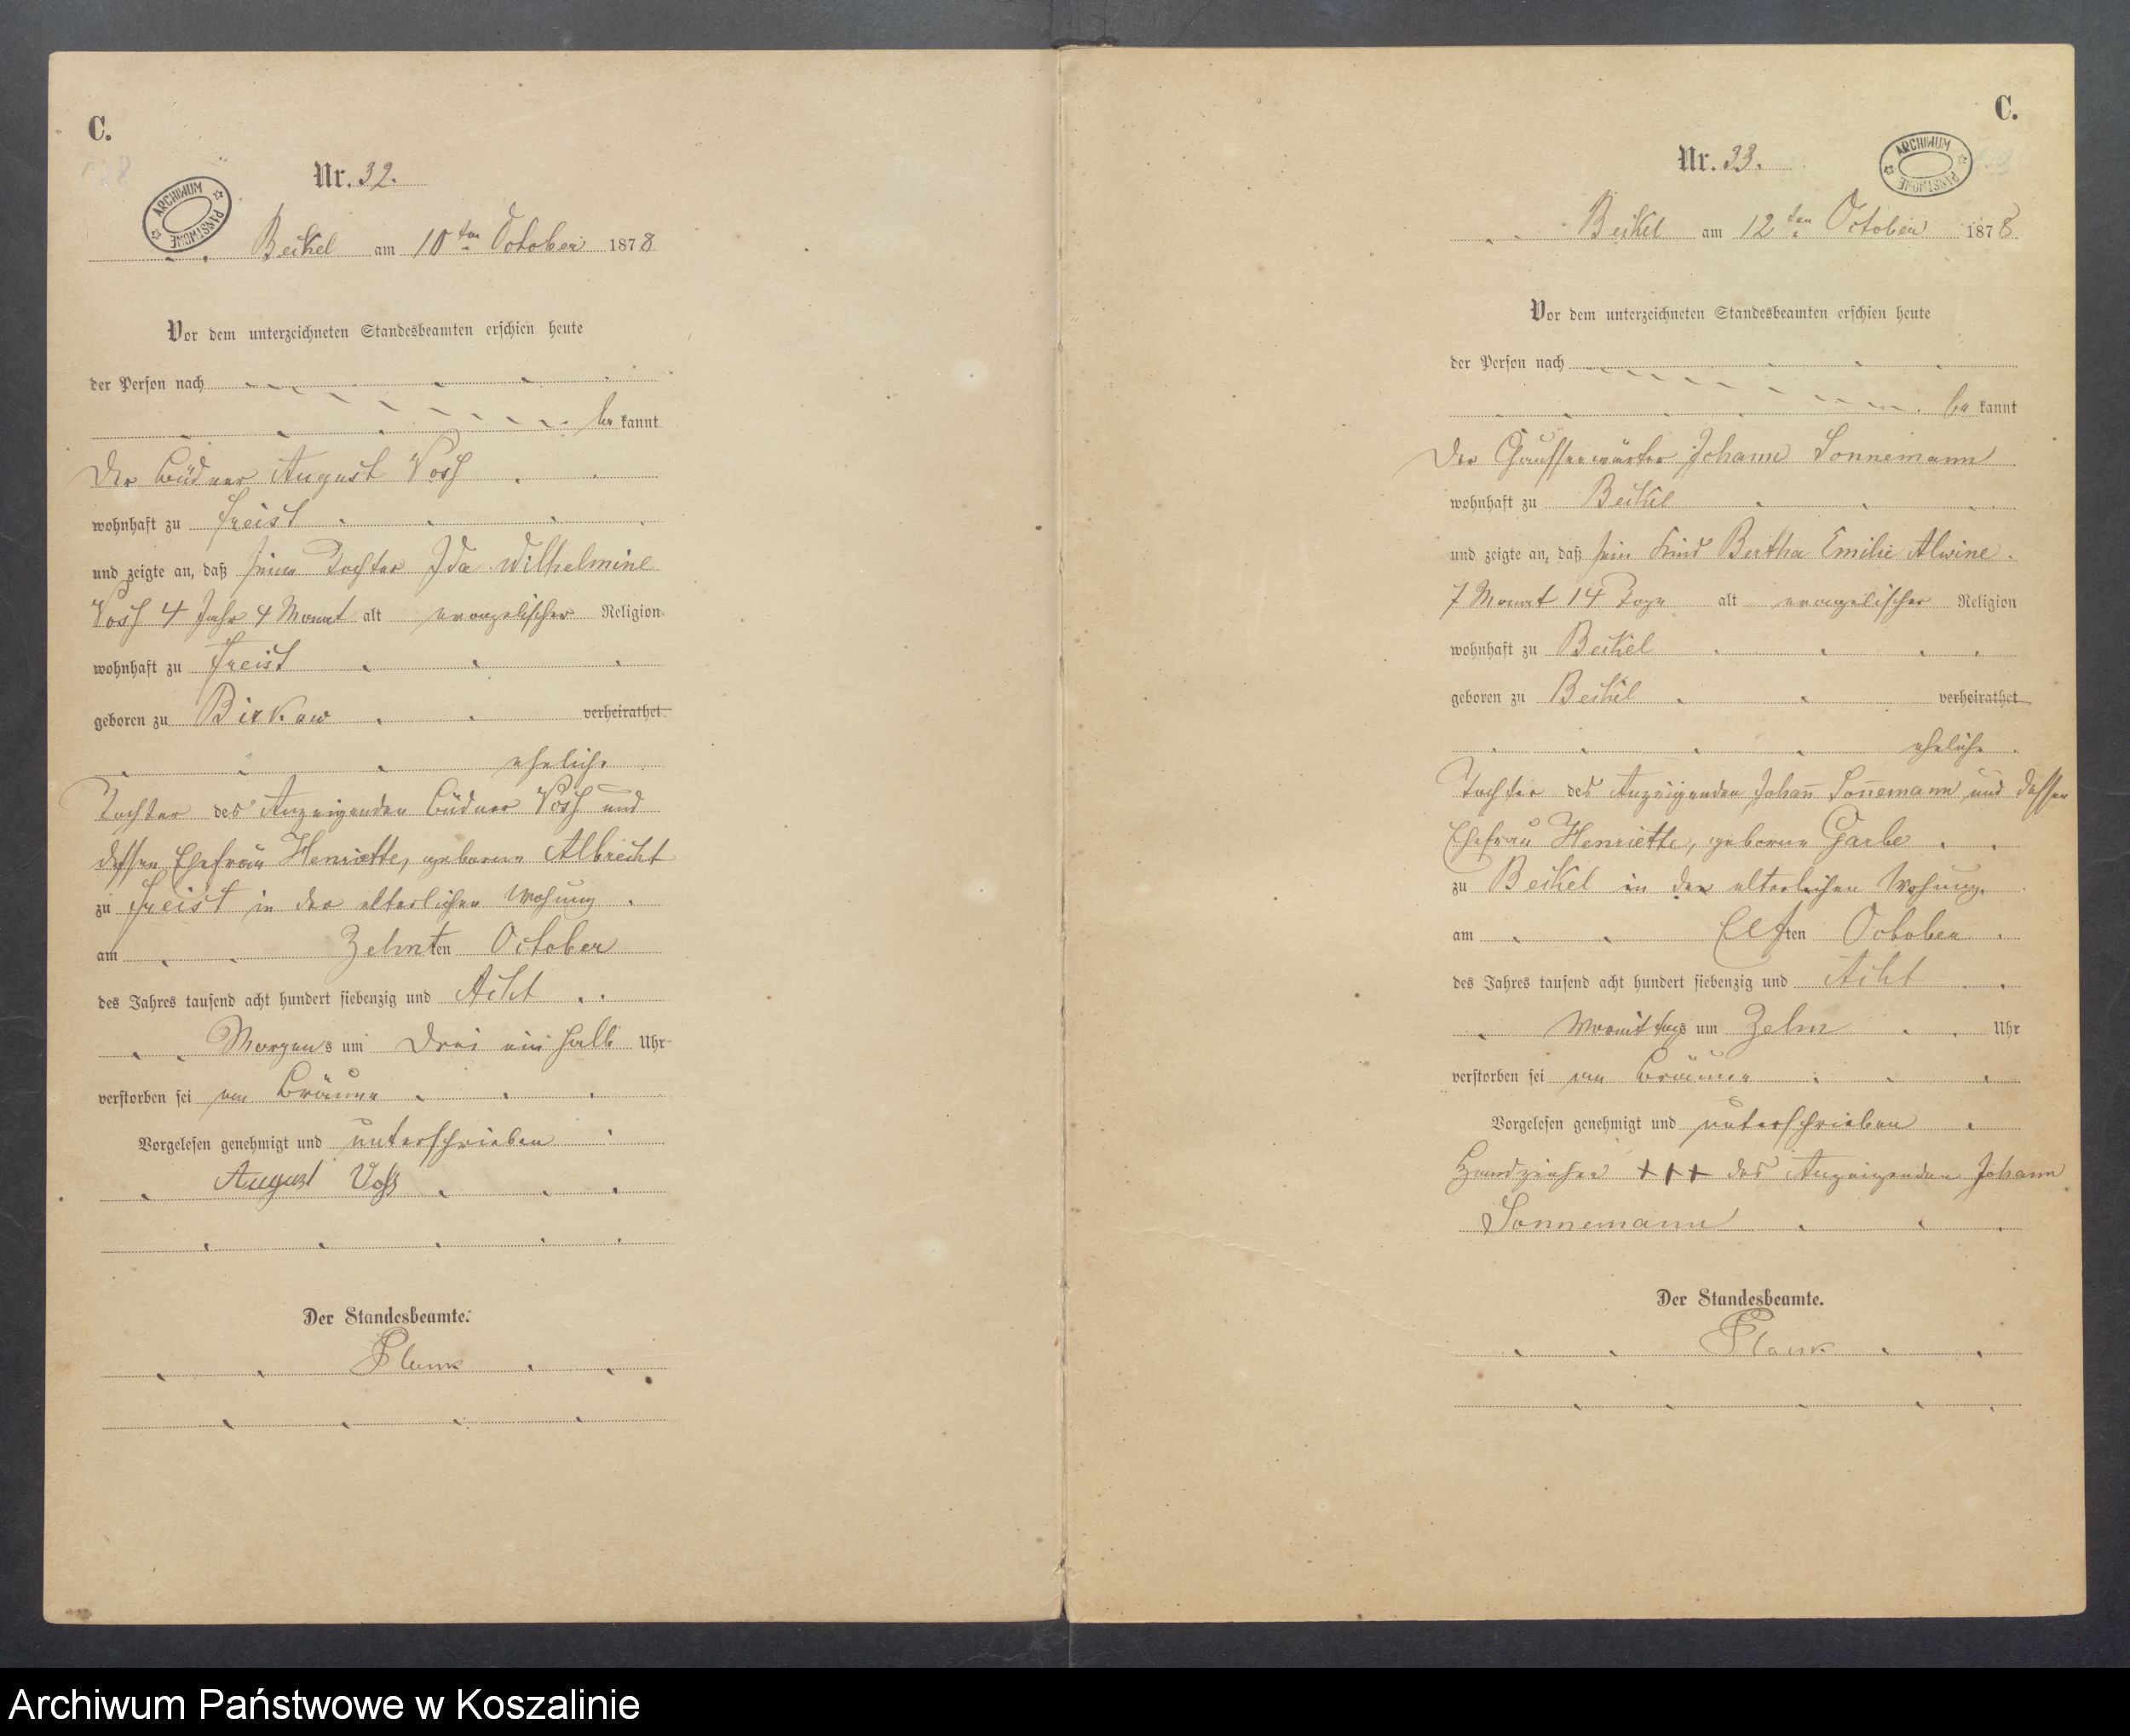 C.
Nr. 32.
ARCHIWUM PAŃSTWOWE
Beckel am 10ten October 1878
Vor dem unterzeichneten Standesbeamten erschien heute
der Person nach
be kannt
Der Büdner August Vosß
wohnhaft zu Freist
und zeigte an, daß seine Tochter Ida Wilhelmine
Vosß 4 Jahr 4 Monat alt evangelischer Religion
wohnhaft zu Freist
geboren zu Birkow verheirathet
eheliche
Tochter des Anzeigenden Büdner Vosß und
dessen Ehefrau Henriette, geborene Albrecht
zu Freist in der elterlichen Wohnung
am Zehnten October
des Jahres tausend acht hundert siebenzig und Acht
Morgens um Drei ein halb Uhr
verstorben sei an Bräune
Vorgelesen genehmigt und unterschrieben
August Voß
Der Standesbeamte.
C.
Nr. 33.
ARCHIWUM PAŃSTWOWE
Beckel am 12ten October 1878
Vor dem unterzeichneten Standesbeamten erschien heute
der Person nach
be kannt
Der Chausseewärter Johann Sonnemann
wohnhaft zu Beckel
und zeigte an, daß sein Kind Bertha Emilie Alwine
7 Monat 14 Tage alt evangelischer Religion
wohnhaft zu Beckel
geboren zu Beckel verheirathet
eheliche
Tochter des Anzeigenden Johan̄ Son̄emann und dessen
Ehefrau Henriette, geborne Garbe
zu Beckel in der elterlichen Wohnung
am Elften October
des Jahres tausend acht hundert siebenzig und Acht
Vormittags um Zehn Uhr
verstorben sei an Bräune
Vorgelesen genehmigt und unterschrieben
Handzeichen +++ des Anzeigenden Johann
Sonnemann
Der Standesbeamte.
Archiwum Państwowe w Koszalinie